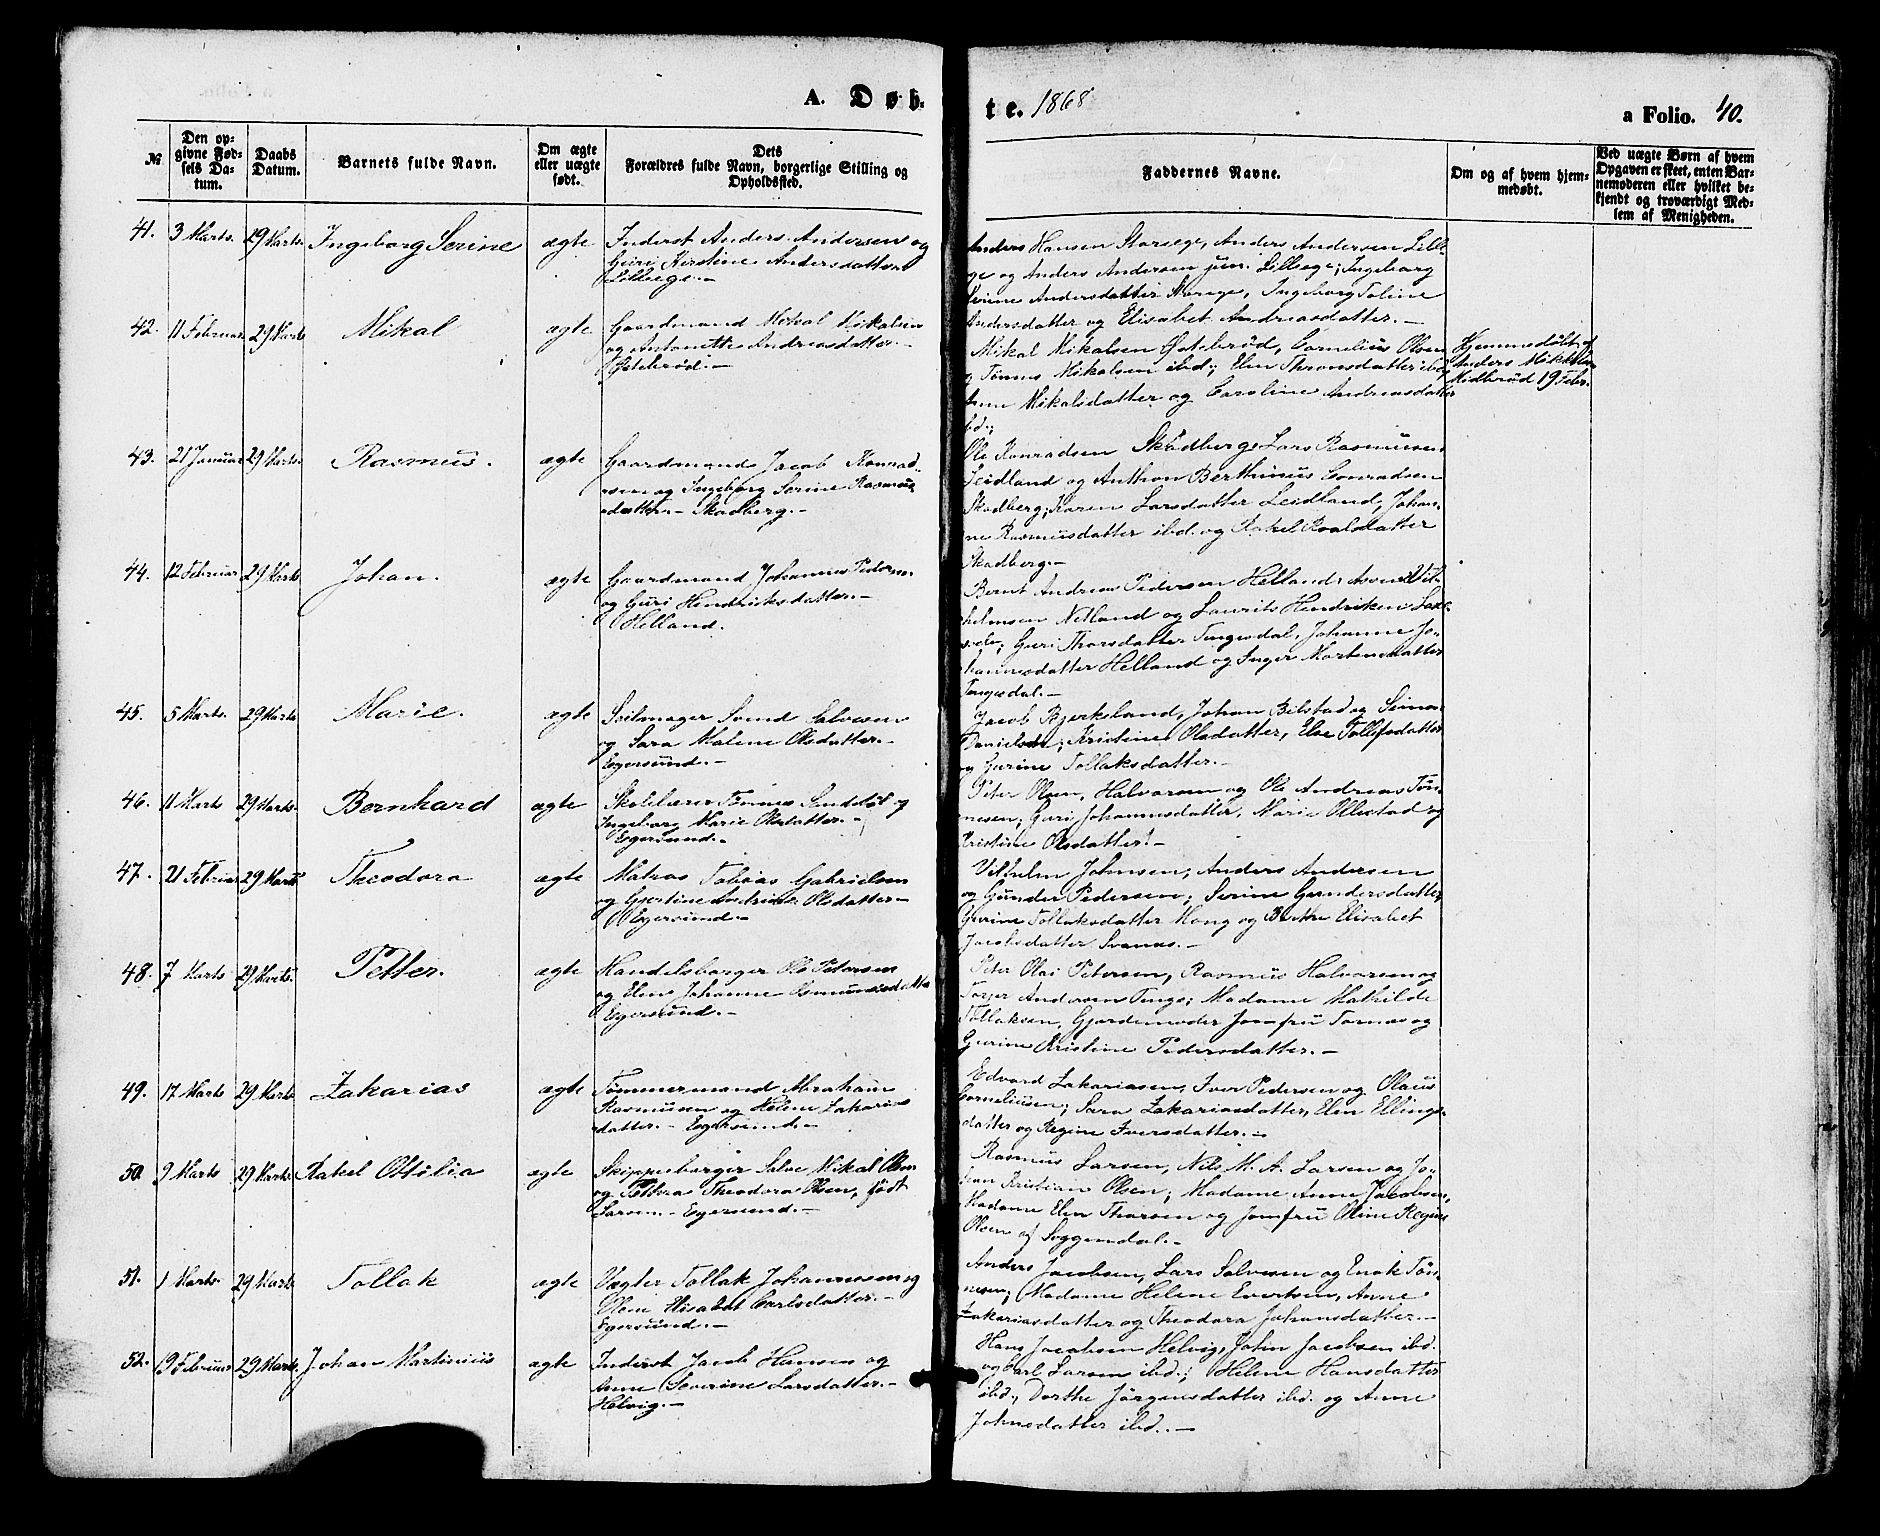 A. Døb-
te. 1868
a Folio. 40.
№
Den op-
givne Fød-
sels Da-
tum.
Daabs
Datum.
Barnets fulde Navn.
Om ægte
eller uægte
født.
Dets
Forældres fulde Navn, borgerlige Stilling og
Opholdssted.
Faddernes Navne.
Om og af hvem hjem-
medøbt.
Ved uægte Børn af hvem
Opgaven er skeet, enten Bar-
nemoderen eller hvilket be-
kjendt og troværdigt Med-
lem af Menigheden.
41. 3 Marts. 29 Marts. Ingeborg Serine ægte Inderst Anders Andersen og
Guri Kirstine Andersdatter
Lillsege.-
Anders Hansen Storsege, Anders Andersen Lills-
ege og Anders Andersen jun. Lillsege; Ingeborg
Serine Andersdatter Storege, Ingeborg Taline
Andersdatter og Elisabet Andreasdatter.-
42. 11 Februar 29 Marts Mikal ægte Gaardmand Mikal Mikalsen
og Antonette Andreasdatter.-
Østebrød.-
Mikal Mikalsen Østebrød, Cornelius Olsen
og Tønnes Mikalsen ibd; Elen Thronsdatter ibd,
Anne Mikalsdatter og Caroline Andreasdatter
ibd.;
Hjemmedøbt af
Anders Mikkelsen
Midbrød 19 Febr.
43. 21 Januar 29 Marts. Rasmus. ægte Gaardmand Jacob Konrad-
sen og Ingeborg Serine Rasmus-
datter.- Skadberg.-
Ole Konradsen Skadberg, Lars Rasmussen
Leidland og Anthon Berthinius Conradsen
Skadberg; Karen Larsdatter Leidland, Johan-
ne Rasmusdatter ibd. og Rakel Roalsdatter
Skadberg.-
44. 12 Februar 29 Marts Johan. ægte Gaardmand Johannes Peders.
og Guri Hendriksdatter.-
Helland.
Bernt Andreas Pedersen Helland, Asven Vil-
helmsen Netland og Laurits Hendriksen
Guri Thorsdatter Tengesdal, Johanne Jo-
hannesdatter Helland og Inger Mortensdatter
Tengesdal.-
45. 5 Marts. 29 Marts Marie. ægte Seilmager Svend Salvesen
og Sara Malene Olsdatter.-
Egersund.-
Jacob Bjerkeland, Johan Bilstad og Simon
Danielsen; Kristine Olsdatter, Else Tollefsdatter
og Gurine Tollaksdatter.-
46. 11 Marts 29 Marts. Bernhard ægte Skolelærer Tønnes og
Ingeborg Marie Olsdatter.-
Egersund.-
Peter Olsen, Halvorsen og Ole Andreas Tøn-
nesen; Guri Johannesdatter, Marie Ollestad og
Kristine Olsdatter.-
47. 21 Februar 29 Marts Theodora ægte Matros Tobias Gabrielsen
og Gjertine Olsdatter.-
Egersund.-
Vilhelm Johnsen, Anders Andersen
og Gunder Pedersen; Serine Gundersdatter,
Gurine Tollaksdatter Hong og Berthe Elisabet
Jacobsdatter Svanes.-
48. 7 Marts 29 Marts. Petter. ægte Handelsborger Ole Petersen
og Elen Johanne Osmundsdatter
Egersund.-
Peter Olai Petersen, Rasmus Halvorsen og
Torger Andersen Tengs; Madame Mathilde
Tollaksen, Gjordemoder Jomfru Tornæs og
Gurine Kristine Pedersdatter.-
49. 17 Marts 29 Marts Zakarias ægte Tømmermand Abraham
Rasmusen og Helene Zakarias
datter.- Egersund.-
Edvard Zakariasen, Iver Pedersen og Olaus
Corneliusen; Sara Zakariasdatter, Elen Ellings-
datter og Regine Iversdatter.-
50. 9 Marts 29 Marts. Rakel Ottilia ægte Skipperborger Salve Mikal Olsen
og Pettera Theodora Olsen, født
Larsen.- Egersund.-
Rasmus Larsen, Nils M. A. Larsen og Jo-
han Kristian Olsen; Madame Anne Jacobsen,
Madame Elen Tharsen og Jomfru Oline Regine
Olsen af Soggendal.-
51. 1 Marts. 29 Marts Tollak ægte Vægter Tollak Johannesen og
Oline Elisabet Carlsdatter.-
Egersund.-
Anders Jacobsen, Lars Salvesen og Enok Tøn-
nesen; Madame Helene Evertsen, Anne
Zakariasdatter og Theodora Johansdatter.-
52. 19 Februar 29 Marts. Johan Martinius ægte Inderst Jacob Hansen og
Anne Severine Larsdatter.-
Helvig.-
Hans Jacobsen Helvig, John Jacobsen ibd.
og Carl Larsen ibd.; Helene Hansdatter
ibd., Dorthe Jørgensdatter ibd. og Anne
Johnsdatter ibd.-